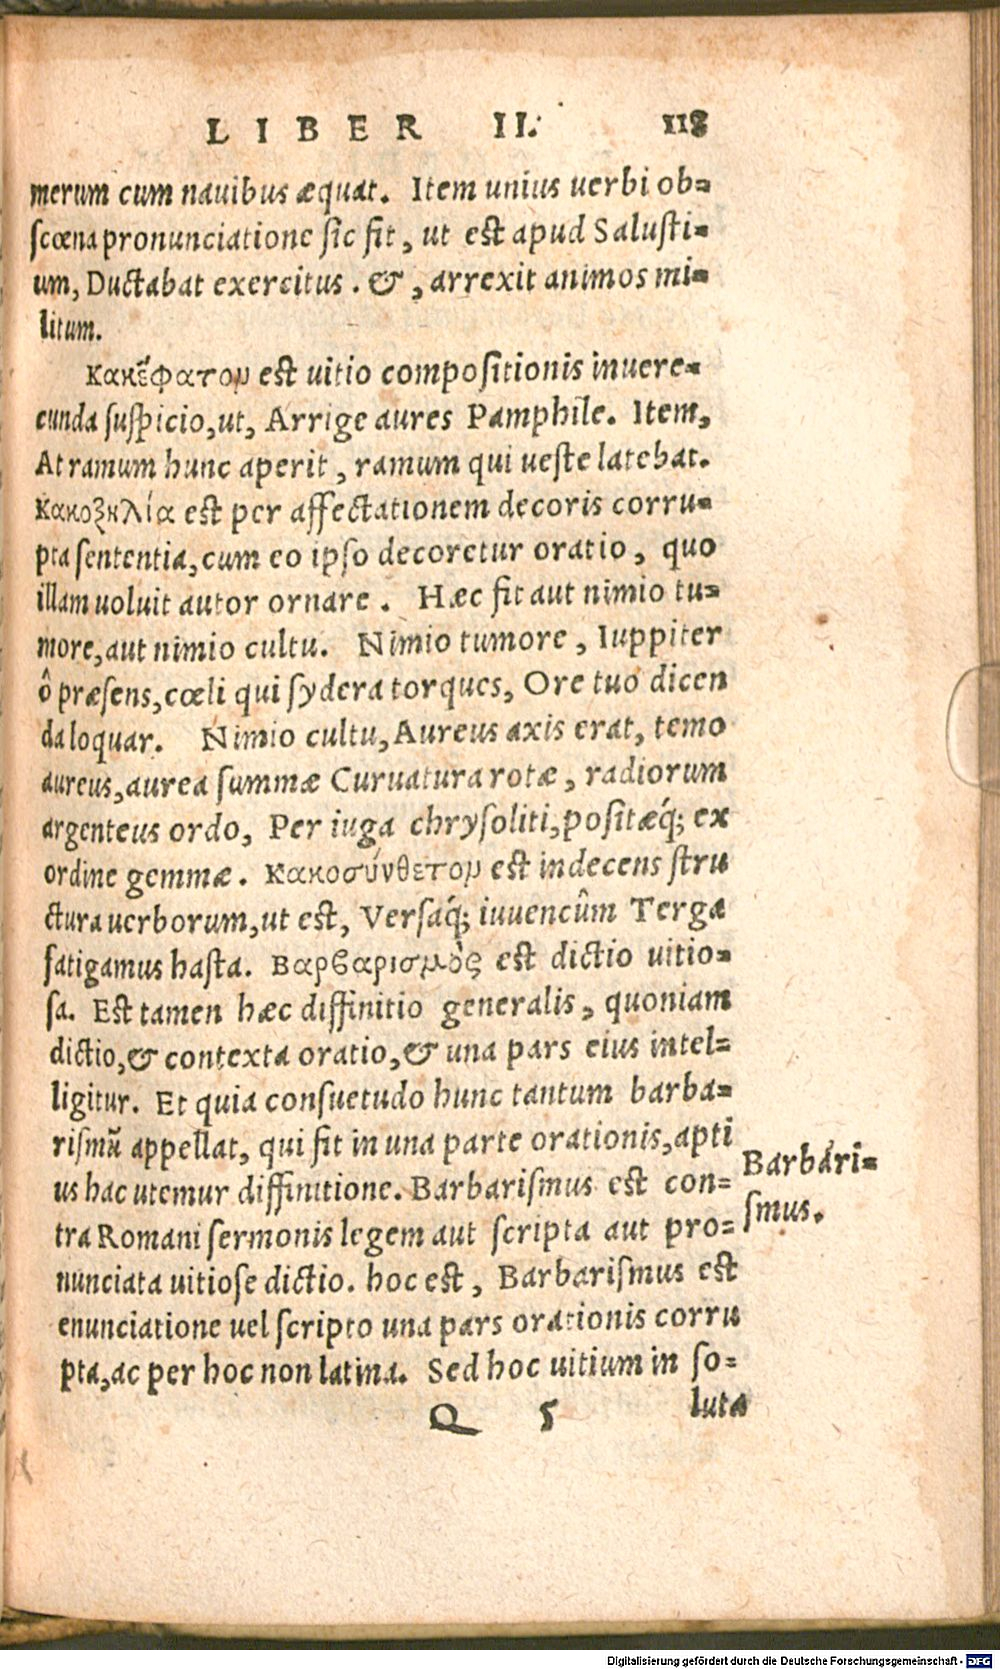 LIBER II. 118
merum cum nauibus æquat. Item unius uerbi ob=
scœna pronunciatione sic fit, ut est apud Salusti=
um, Ductabat exercitus. &, arrexit animos mi=
litum.
Κακέφατον est uitio compositionis inuere=
cunda suspicio, ut, Arrige aures Pamphile. Item,
At ramum hunc aperit, ramum qui ueste latebat.
Κακοζηλία est per affectationem decoris corru=
pta sententia, cum eo ipso decoretur oratio, quo
illam uoluit autor ornare. Hæc fit aut nimio tu=
more, aut nimio cultu. Nimio tumore, Iuppiter
ô præsens, cœli qui sydera torques, Ore tuo dicen
da loquar. Nimio cultu, Aureus axis erat, temo
aureus, aurea summæ Curuatura rotæ, radiorum
argenteus ordo, Per iuga chrysoliti, positæq́; ex
ordine gemmæ. Κακοσύνθετον est indecens stru
ctura uerborum, ut est, Versaq́; iuuencûm Terga
fatigamus hasta. Βαρβαρισμὸς est dictio uitio=
sa. Est tamen hæc diffinitio generalis, quoniam
dictio, & contexta oratio, & una pars eius intel=
ligitur. Et quia consuetudo hunc tantum barba=
rismū appellat, qui fit in una parte orationis, apti
us hac utemur diffinitione. Barbarismus est con=
tra Romani sermonis legem aut scripta aut pro=
nunciata uitiose dictio. hoc est, Barbarismus est
enunciatione uel scripto una pars orationis corru
pta, ac per hoc non latina. Sed hoc uitium in so=
Barbari=
smus.
Q 5 luta
Digitalisierung gefördert durch die Deutsche Forschungsgemeinschaft - DFG